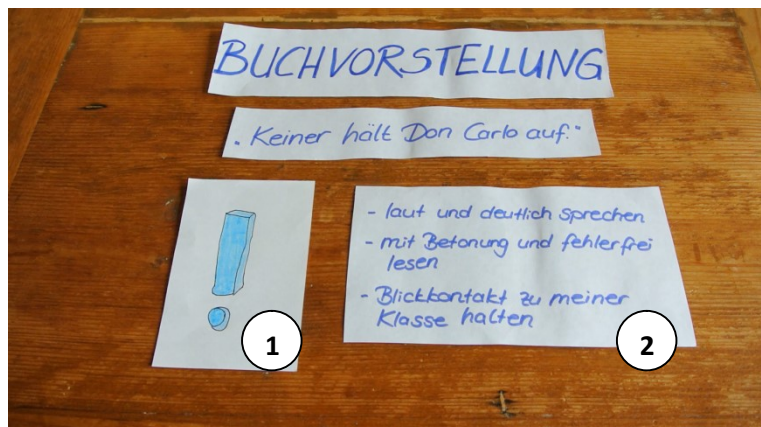 BUCHVORSTELLUNG
"Keiner hält Don Carlo auf."
- laut und deutlich sprechen
- mit Betonung und fehlerfrei
lesen
- Blickkontakt zu meiner
Klasse halten
1
2